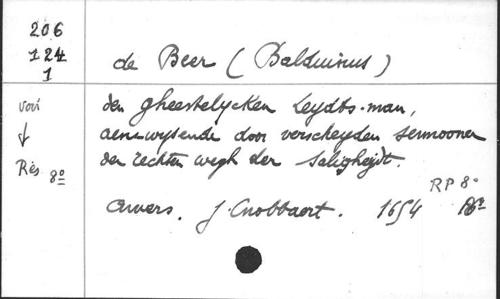 206
124
1
de Beer (Balduinus)
voir
↓
Rés 8º
den gheestelycken Leydts-man,
aenwysende door verscheyden sermoonen
den rechten wegh der saligheydt.
RP 8º
Anvers. J. Cnobbaert. 1654